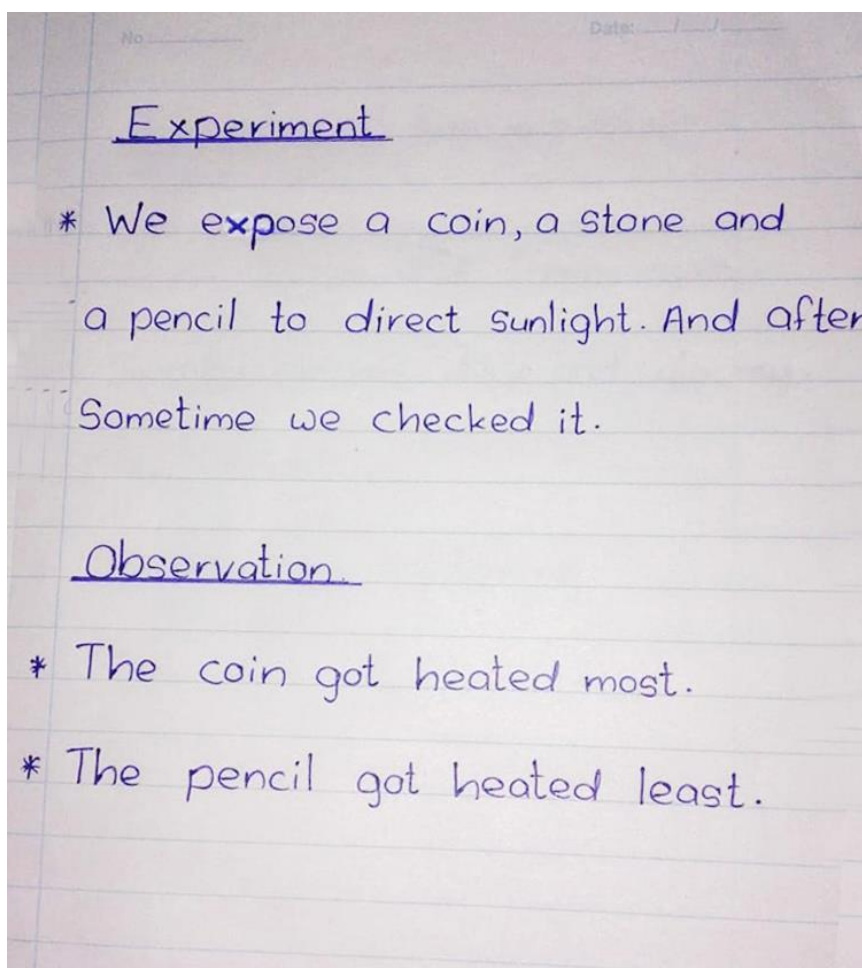 No
Date: / /
Experiment
* We expose a coin, a stone and
a pencil to direct sunlight. And after
Sometime we checked it.
Observation.
* The coin got heated most.
* The pencil got heated least.